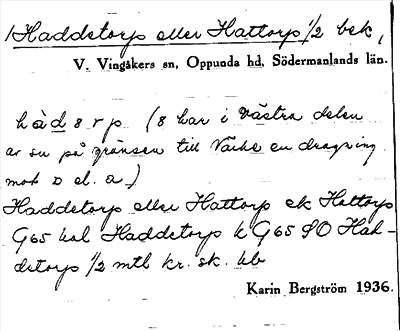 Haddetorp eller Hattorp 1/2 bek,
V. Vingåkers sn, Oppunda hd, Södermanlands län.
hàd8rp (8 har i västra delen
av sn på gränsen till Närke en dragning
mot o el. a)
Haddetorp eller Hattorp ek Hattorp
G65 kal Haddetorp k G65 SO Hah-
detorp 1/2 mtl kr. sk. hb
Karin Bergström 1936.